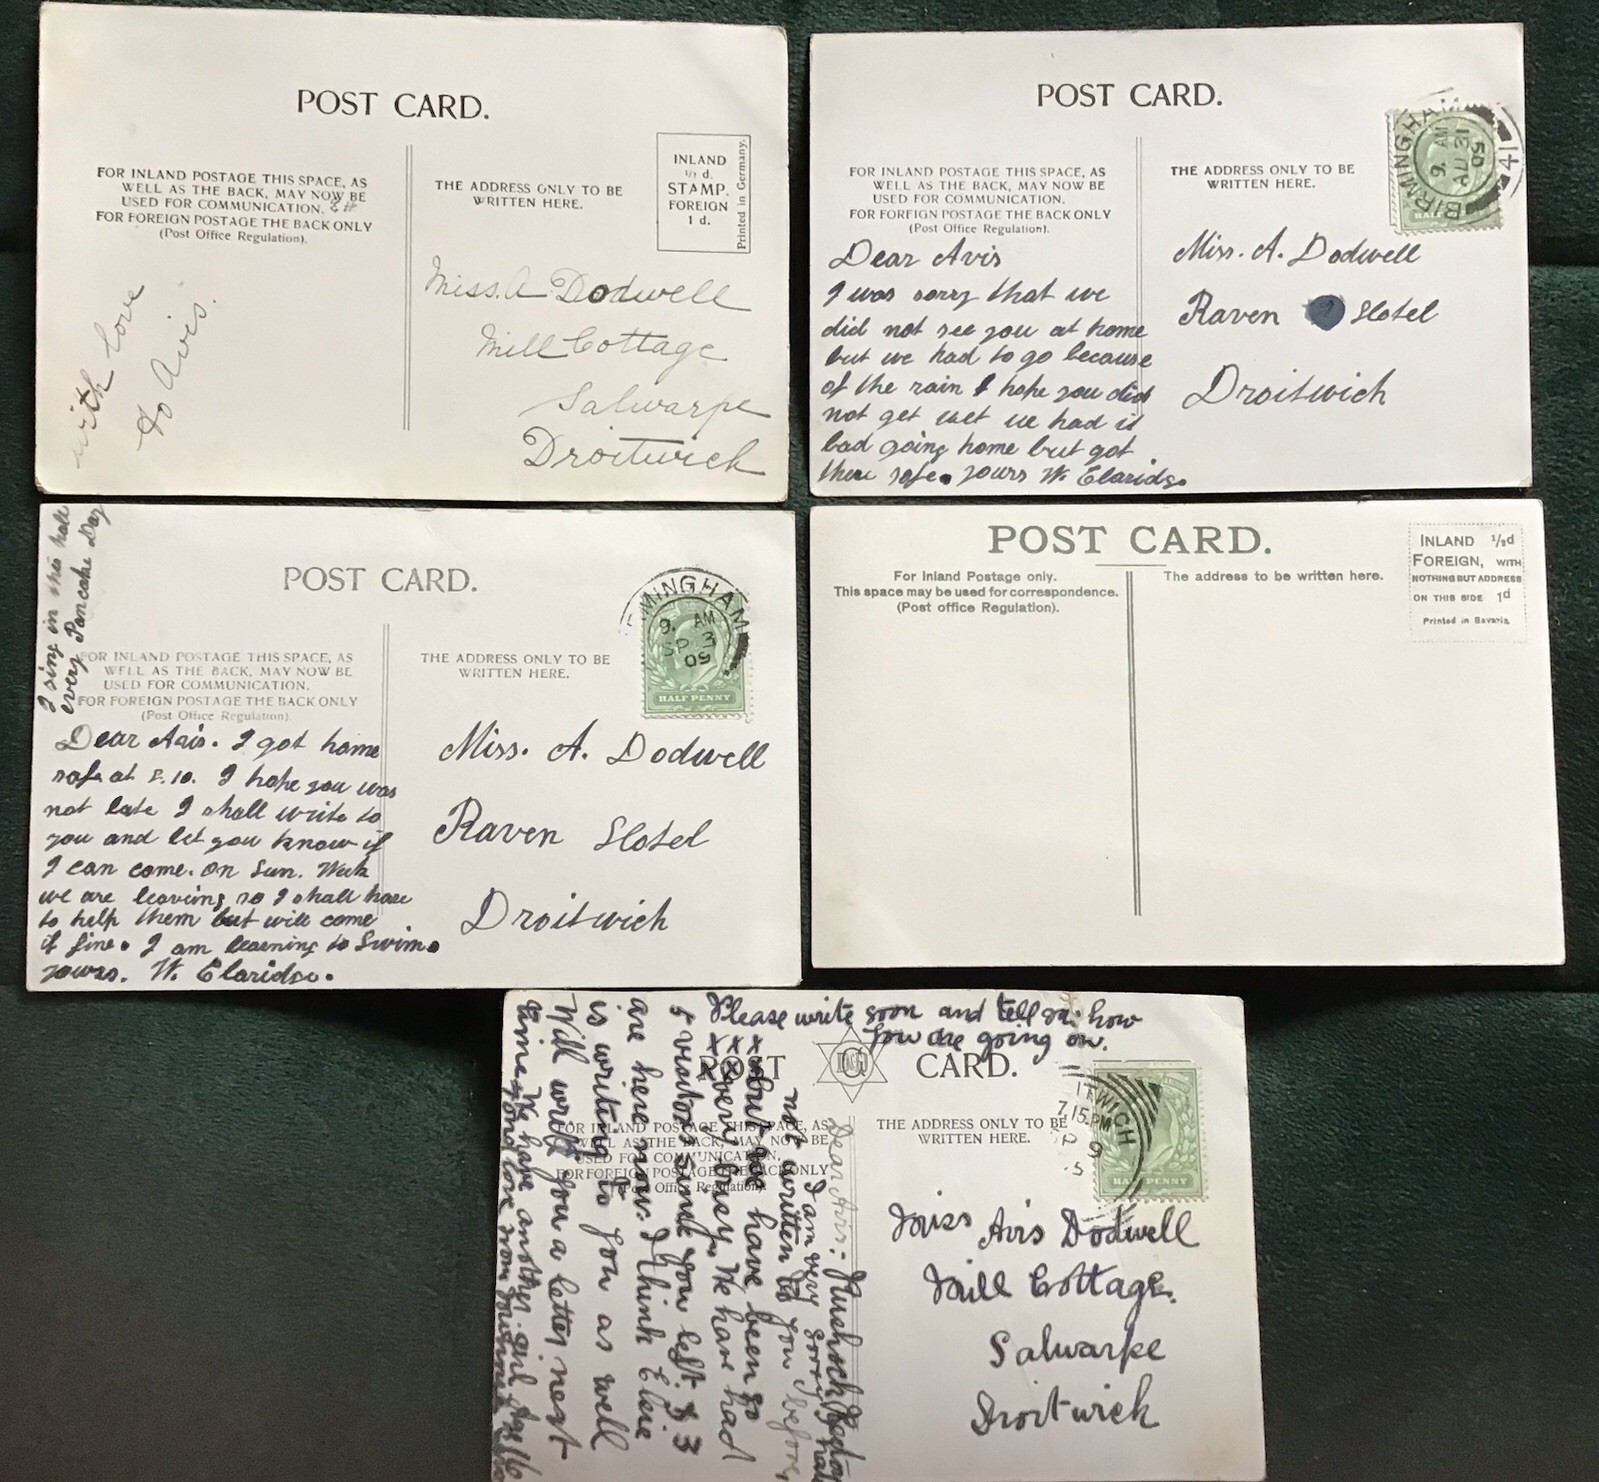 POST CARD.
FOR INLAND POSTAGE THIS SPACE, AS
WELL AS THE BACK, MAY NOW BE
USED FOR COMMUNICATION.
FOR FOREIGN POSTAGE THE BACK ONLY
(Post Office Regulation).
THE ADDRESS ONLY TO BE
WRITTEN HERE.
INLAND
½ d.
STAMP.
FOREIGN
1 d.
Printed in Germany.
with love
to Avis.
Miss. A Dodwell
Mill Cottage
Salwarpe
Droitwich
POST CARD.
FOR INLAND POSTAGE THIS SPACE, AS
WELL AS THE BACK, MAY NOW BE
USED FOR COMMUNICATION.
FOR FORFIGN POSTAGE THE BACK ONLY
(Post Office Regulation).
THE ADDRESS ONLY TO BE
WRITTEN HERE.
BIRMINGHAM
9. AM
AU 31
05
14
HALF
Dear Avis
I was sorry that we
did not see you at home
but we had to go because
of the rain I hope you did
not get wet we had it
bad going home but got
there safe. yours W. Claridge
Miss. A. Dodwell
Raven Hotel
Droitwich
I sing in this hall
every Pancake Day
POST CARD.
FOR INLAND POSTAGE THIS SPACE, AS
WELL AS THE BACK, MAY NOW BE
USED FOR COMMUNICATION.
FOR FOREIGN POSTAGE THE BACK ONLY
(Post Office Regulation)
THE ADDRESS ONLY TO BE
WRITTEN HERE.
MINGHAM
9. AM
SP 3
05
HALF PENNY
Dear Avis. I got home
safe at 8.10. I hope you was
not late I shall write to
you and let you know if
I can come. on Sun. Week
we are leaving so I shall have
to help them but will come
if fine. I am learning to Swim.
yours. W. Claridge.
Miss. A. Dodwell
Raven Hotel
Droitwich
POST CARD.
For Inland Postage only.
This space may be used for correspondence.
(Post office Regulation).
The address to be written here.
INLAND ½d
FOREIGN, WITH
NOTHING BUT ADDRESS
ON THIS SIDE 1d
Printed in Bavaria.
Please write soon and tell me how
you are going on.
xxx
POST CARD.
FOR INLAND POSTAGE THIS SPACE, AS
WELL AS THE BACK, MAY NOW BE
USED FOR COMMUNICATION.
FOR FOREIGN POSTAGE THE BACK ONLY
(Post Office Regulation).
THE ADDRESS ONLY TO BE
WRITTEN HERE.
ITWICH
7.15 PM
SP 9
5
HALF PENNY
Dear Avis:
I am very sorry I have
not written to you before,
but we have been so
very busy. We have had
visitors since you left. & 3
are here now. I think Elsie
is writing to you as well
Will write you a letter next
time. We have another girl age 16
Miss Avis Dodwell
Mill Cottage.
Salwarpe
Droitwich